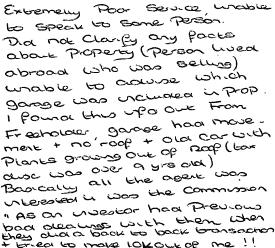 Extremely Poor Service, unable
to speak to same Person.
Did not clarify any facts
about Property (Person lived
abroad who was selling)
unable to advise which
garage was included in prop.
I found this info out From
Freeholder, garage had move-
ment + no roof + old car with
Plants growing out of Roof (tax
disc was over 4 yrs old)
Basically all the agent was
interested in was the commission
"As an investor had Previous
bad dealings with them when
they did a back to back transaction
+ tried to make 10k out of me !!